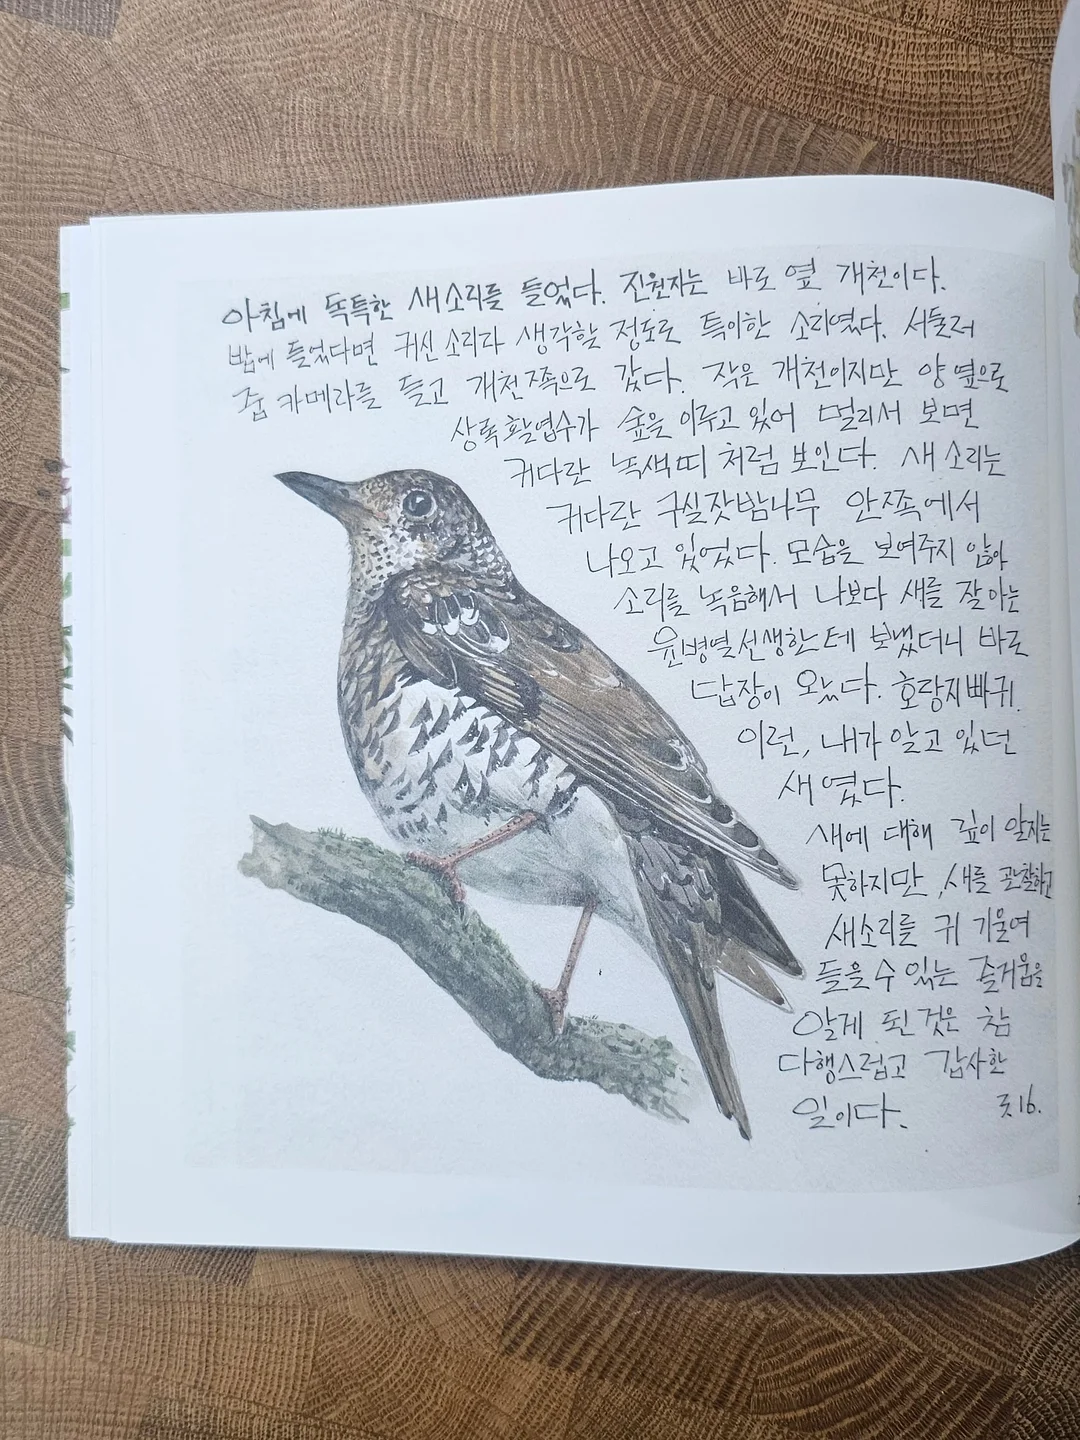 아침에 독특한 새소리를 들었다. 진원지는 바로 옆 개천이다.
밤에 들었다면 귀신 소리라 생각할 정도로 특이한 소리였다. 서둘러
줌 카메라를 들고 개천쪽으로 갔다. 작은 개천이지만 양 옆으로
상록활엽수가 숲을 이루고 있어 멀리서 보면
커다란 녹색띠 처럼 보인다. 새소리는
커다란 구실잣밤나무 안쪽에서
나오고 있었다. 모습을 보여주지 않아
소리를 녹음해서 나보다 새를 잘 아는
윤병열선생한테 보냈더니 바로
답장이 왔다. 호랑지빠귀.
이런, 내가 알고 있던
새였다.
새에 대해 깊이 알지는
못하지만, 새를 관찰하고
새소리를 귀 기울여
들을 수 있는 즐거움을
알게 된 것은 참
다행스럽고 감사한
일이다.